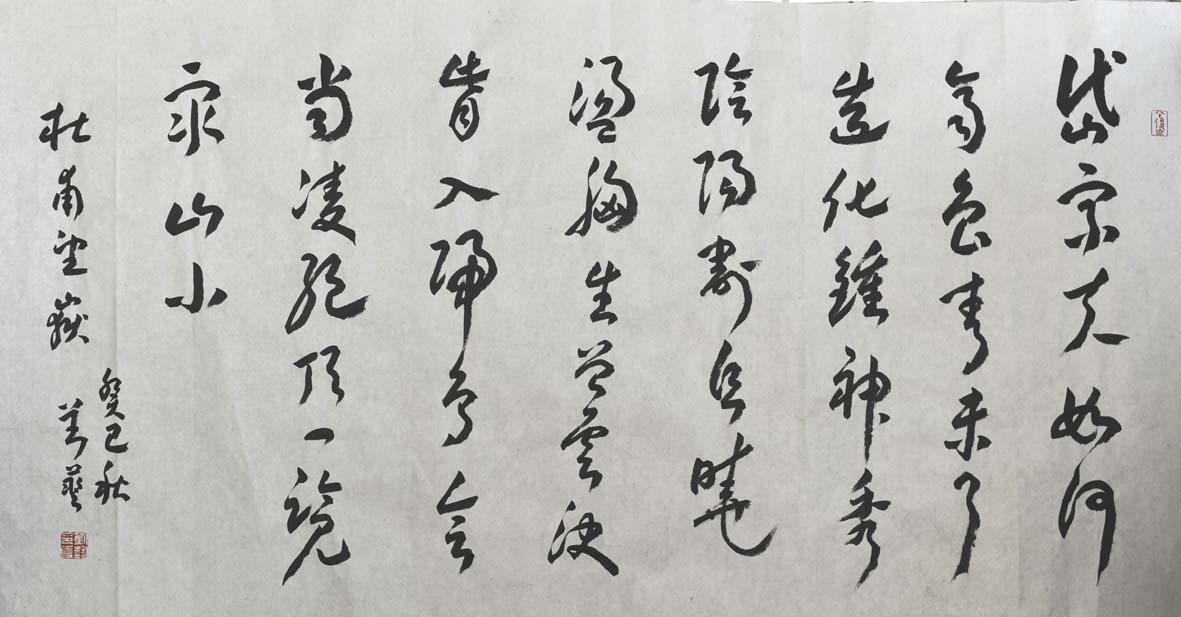 岱宗夫如何
齊魯青未了
造化鍾神秀
陰陽割昏曉
盪胸生曾雲決
眥入歸鳥會
當凌絕頂一覽
眾山小
杜甫望嶽
癸巳秋